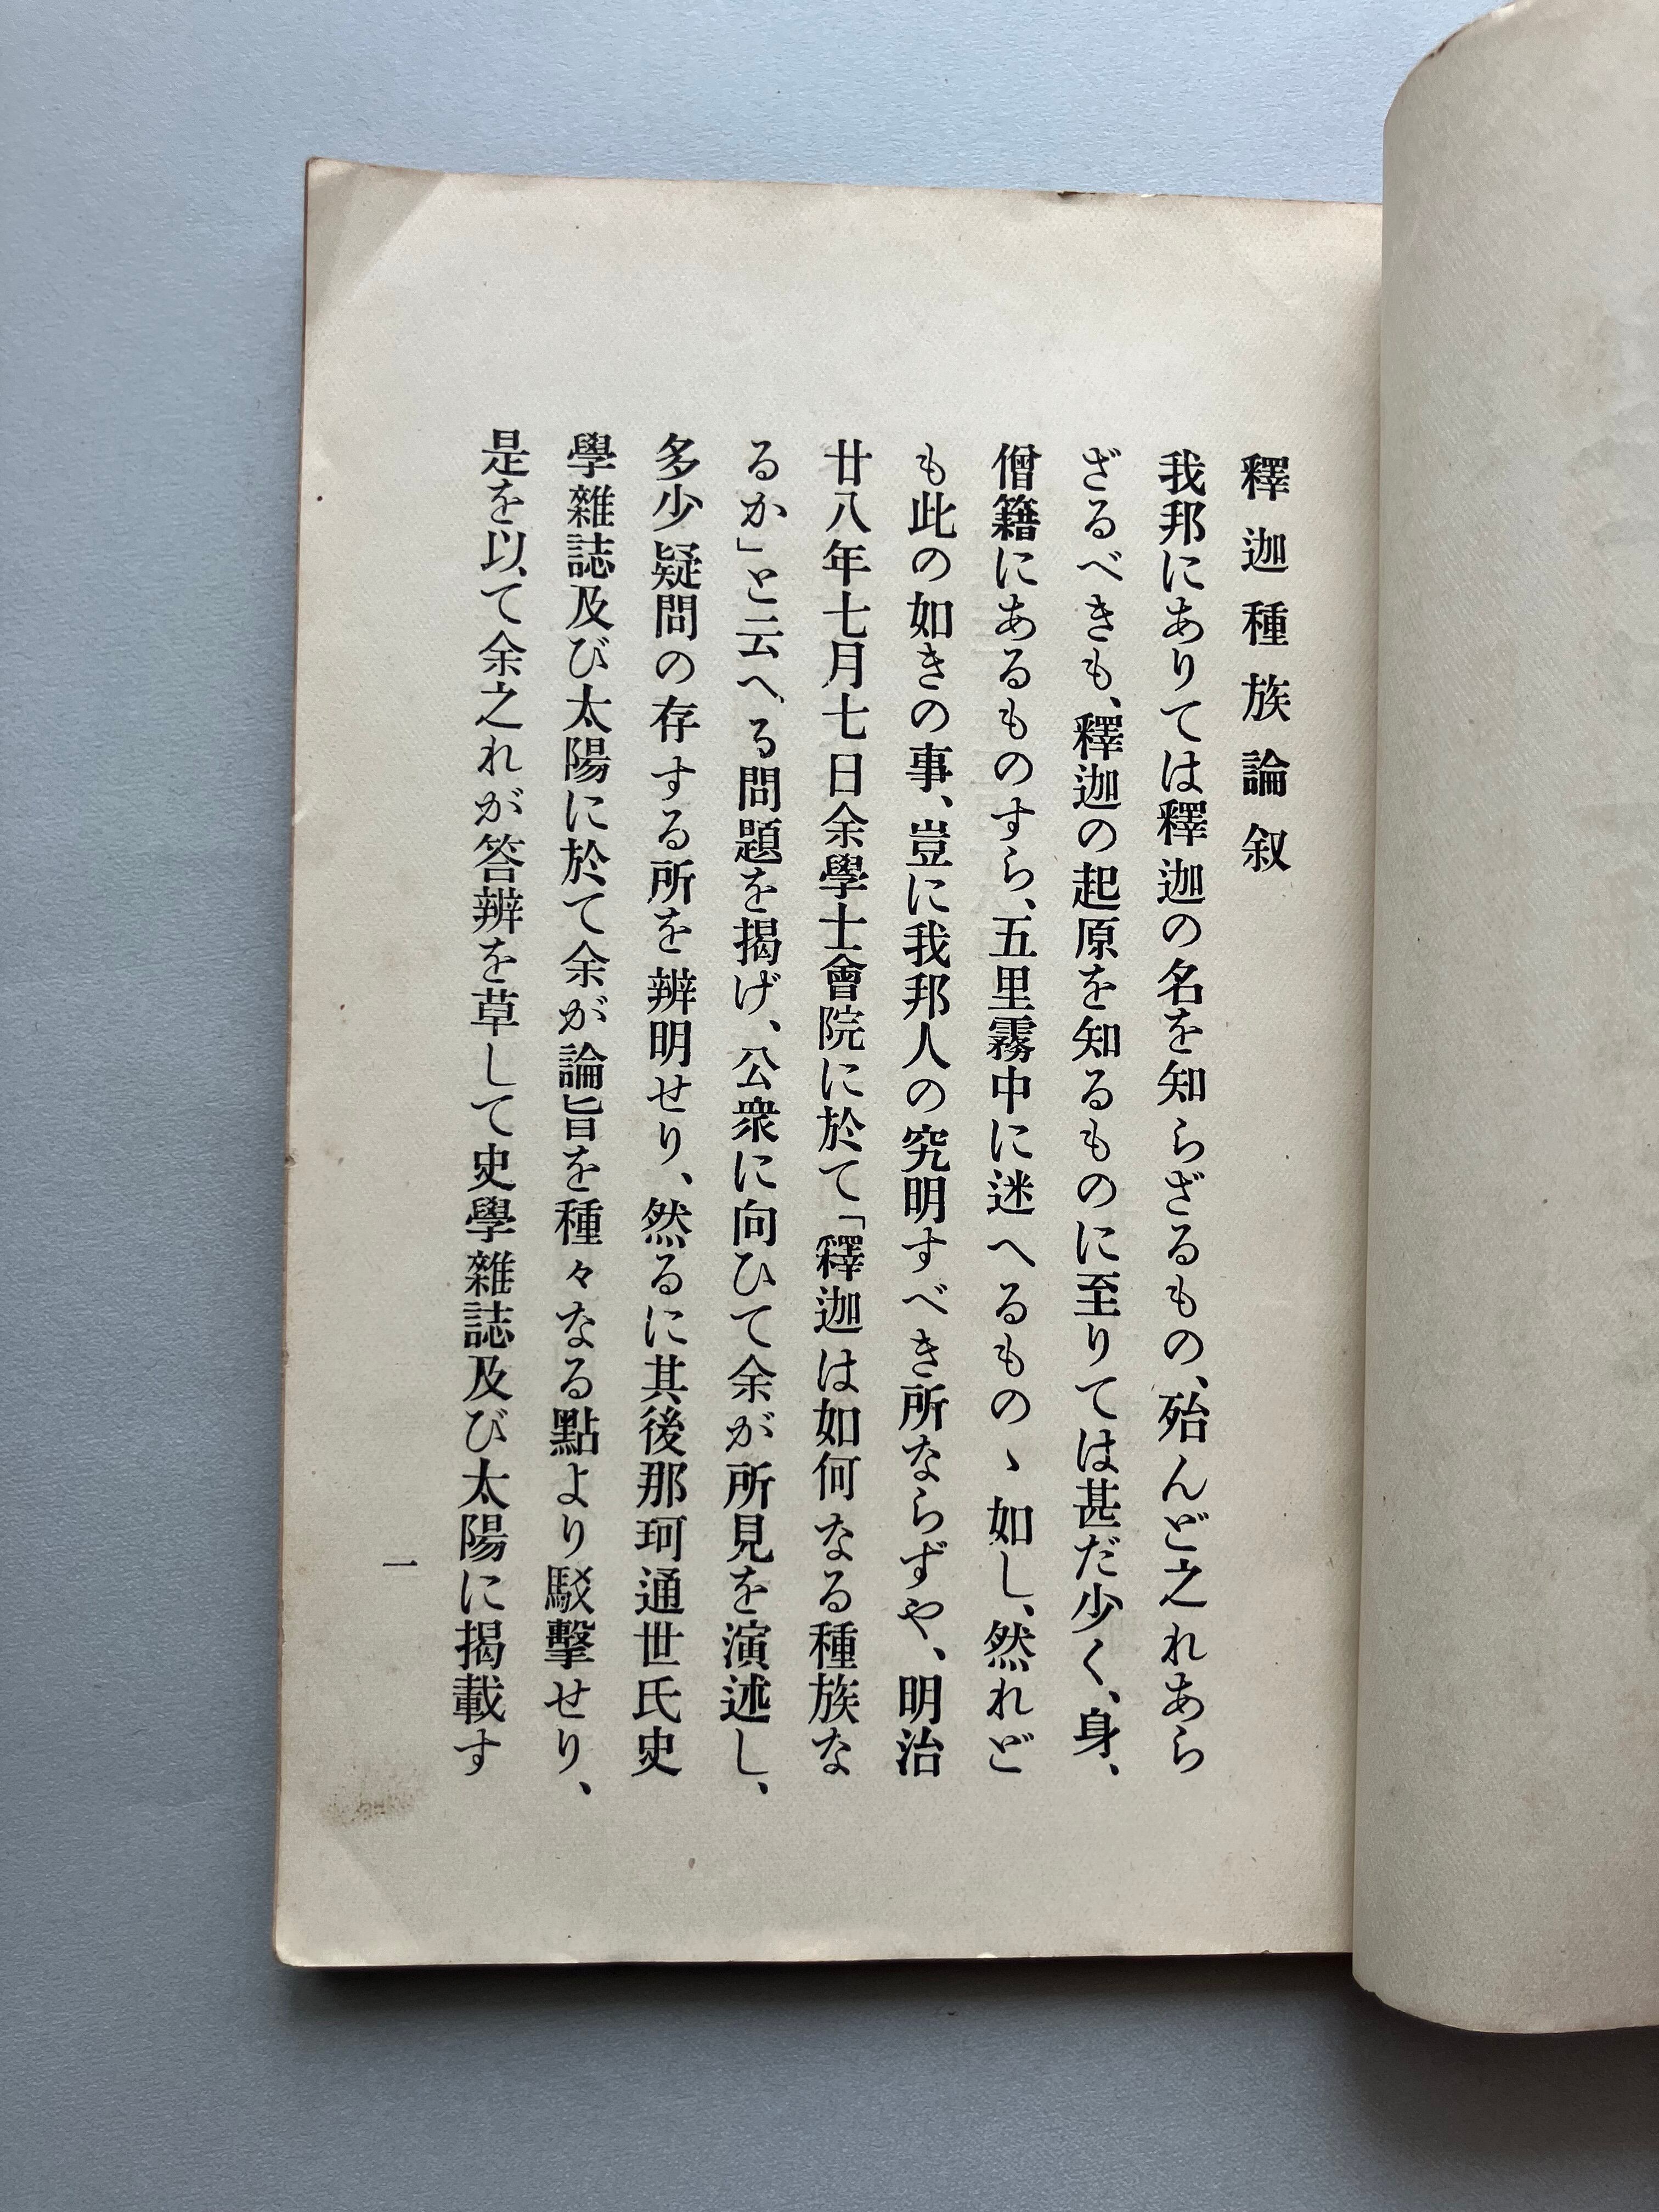 釋迦種族論叙
我邦にありては釋迦の名を知らざるもの、殆んど之れあら
ざるべきも、釋迦の起原を知るものに至りては甚だ少く、身、
僧籍にあるものすら、五里霧中に迷へるものゝ如し、然れど
も此の如きの事、豈に我邦人の究明すべき所ならずや、明治
廿八年七月七日余學士會院に於て「釋迦は如何なる種族な
るか」と云へる問題を揭げ、公衆に向ひて余が所見を演述し、
多少疑問の存する所を辨明せり、然るに其後那珂通世氏史
學雜誌及び太陽に於て余が論旨を種々なる點より駁擊せり、
是を以て余之れが答辨を草して史學雜誌及び太陽に揭載す
一